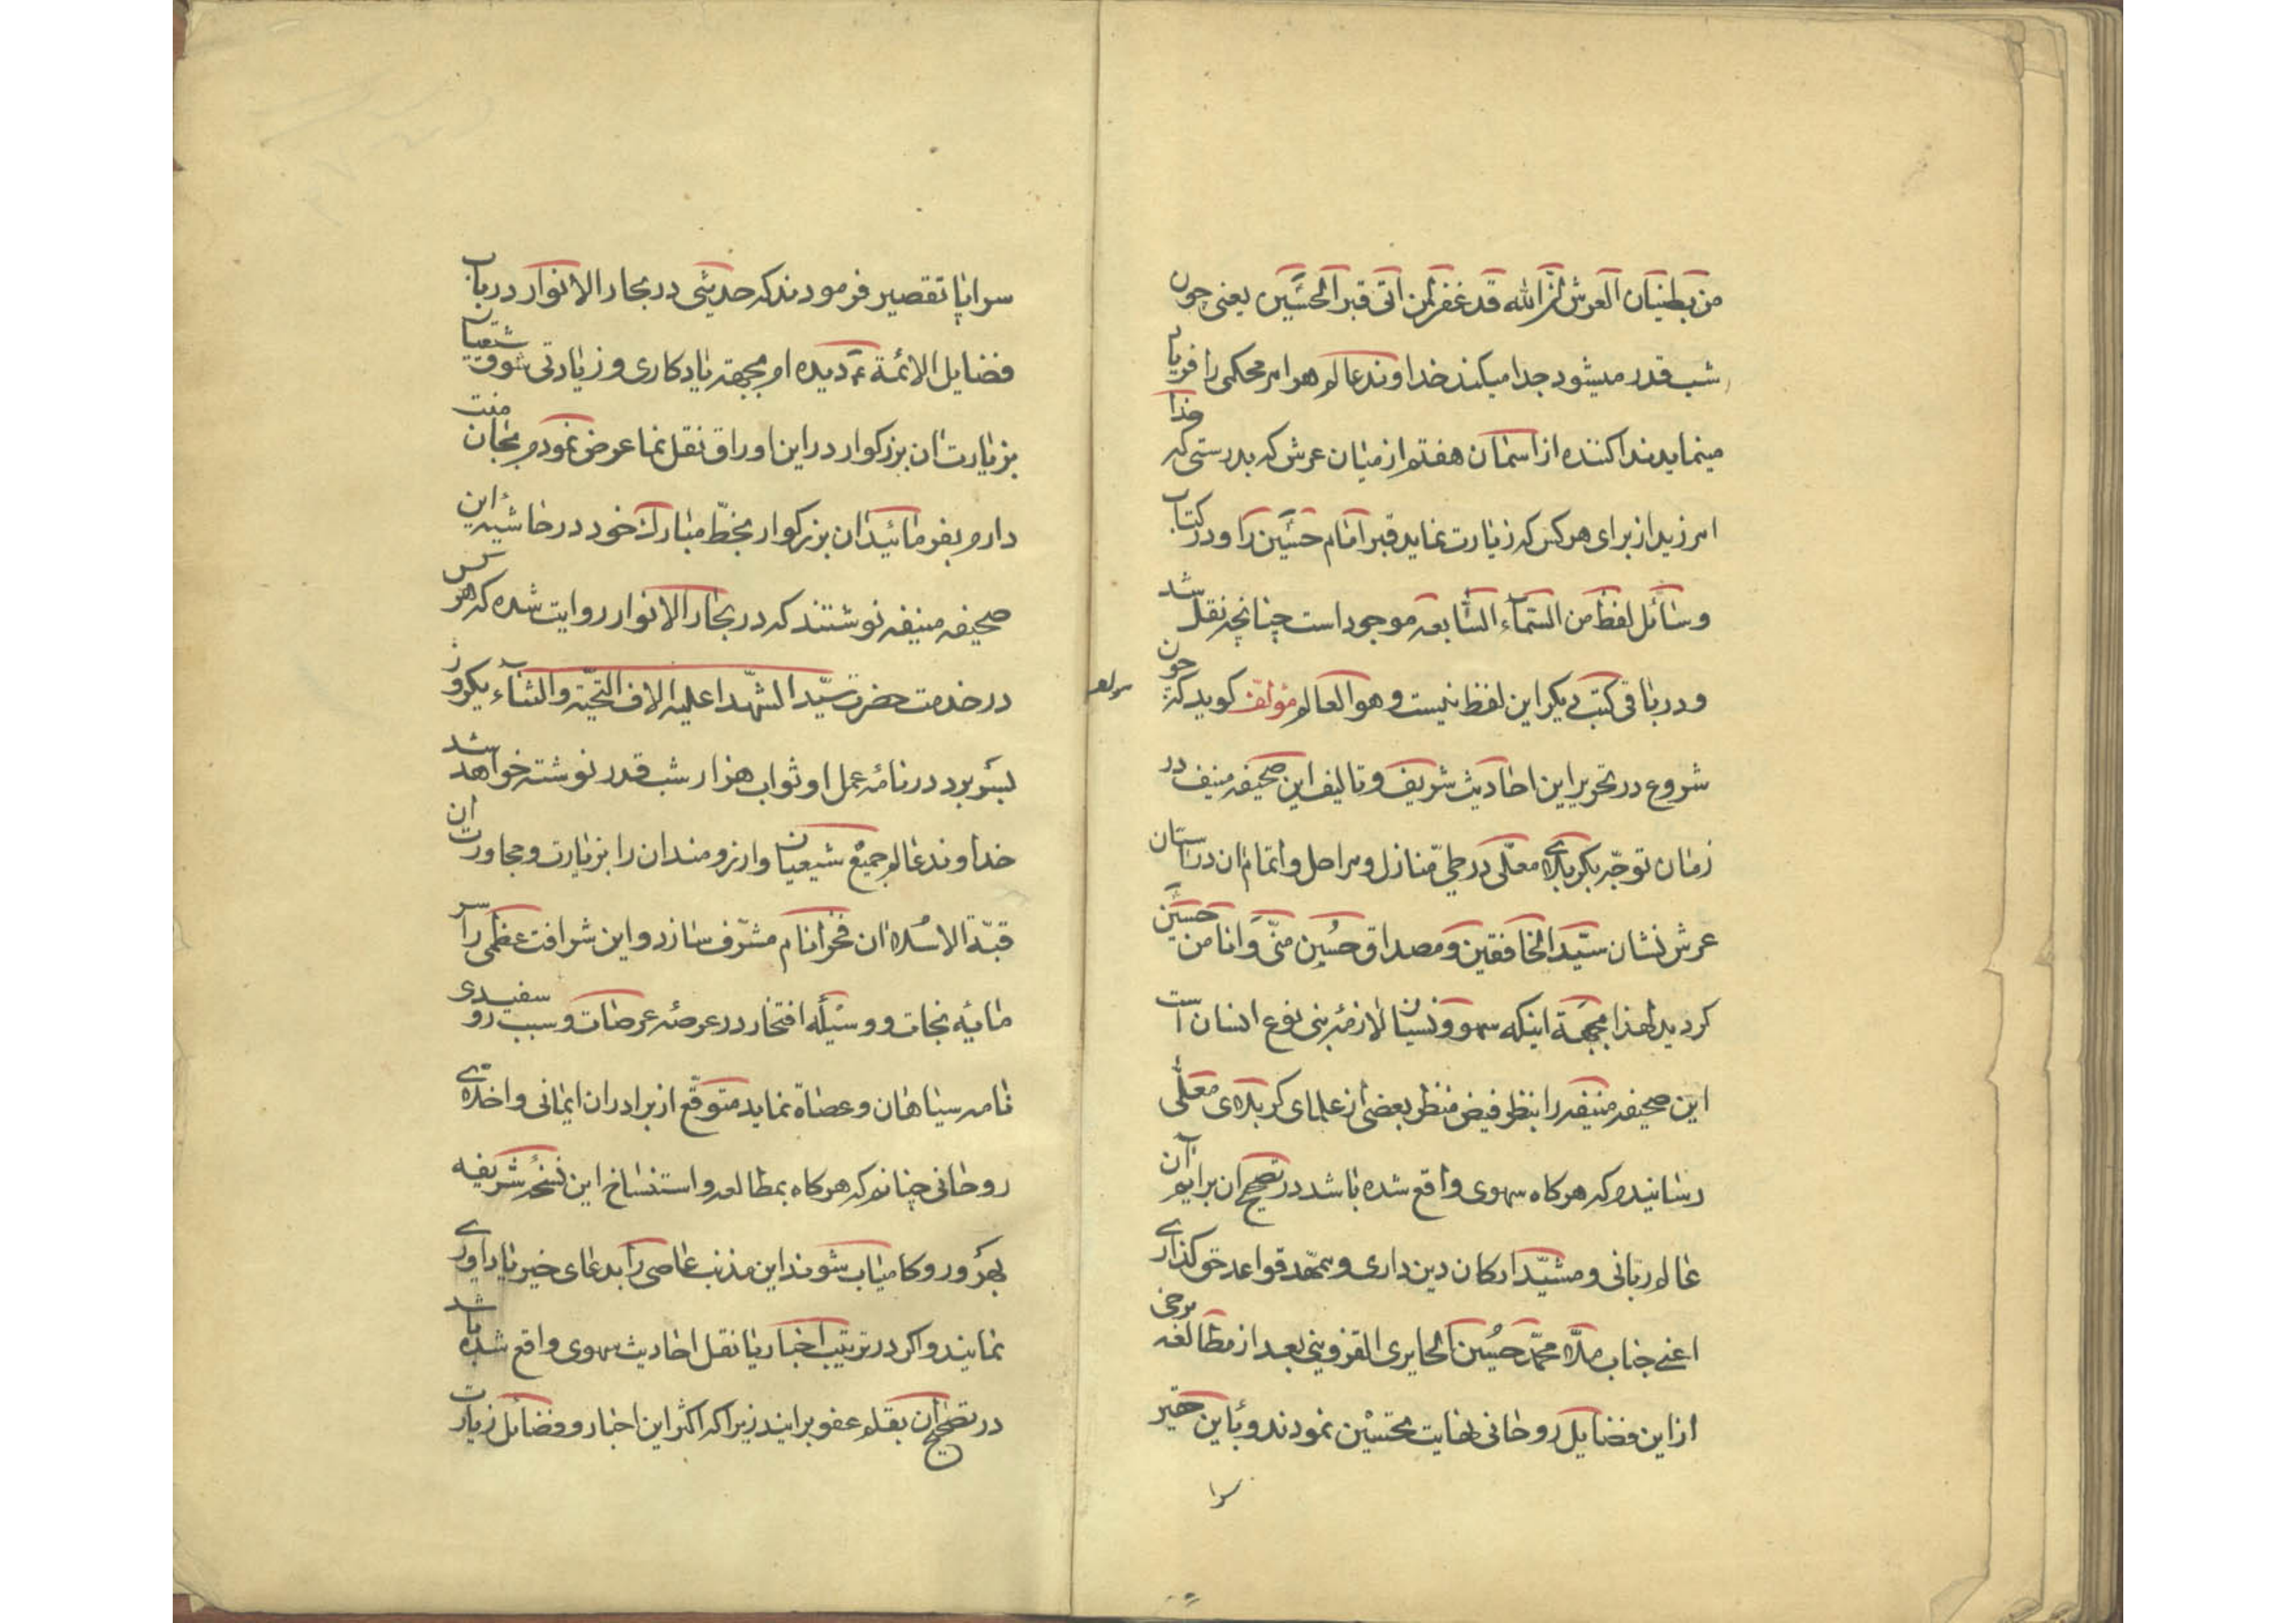 من بطنان العرش انّ الله قد غفر لمن اتی قبر الحسین یعنی چون
شب قدر میشود جدا میکند خداوند عالم هر امر محکمی را فریاد
مینماید ندا کننده از اسمان هفتم از میان عرش که بدرستی که خدا
امرزید از برای هر کس که زیارت نماید قبر امام حسین را و در کتاب
وسائل لفظ من السّماء السّابعه موجود است چنانچه نقل شد
و در باقی کتب دیکر این لفظ نیست و هو العالم مؤلف کوید که چون
شروع در تحریر این احادیث شریف و تالیف این صحیفه منیف در
زمان توجّه بکربلای معلّی در طیّ منازل و مراحل و اتمام ان در استان
عرش نشان سیّد الخافقین و مصداق حُسین منّی و انا من حسین
کردید لهذا بجهة اینکه سهو و نسیان لازمهٔ بنی نوع انسان است
این صحیفه منیفه را بنظر فیض منظر بعضی از علمای کربلای معلّی
رسانیدم که هر کاه سهوی واقع شده باشد در تصحیح ان برایند آن
عالم ربّانی و مشیّد ارکان دین داری و ممهّد قواعد حق کذاری
اعنی جناب ملّا محمّد حسین الحایری القزوینی بعد از مطالعه برخی
از این فضایل روحانی نهایت تحسین نمودند و باین حقیر
سرا
سراپا تقصیر فرمودند که حدیثی در بحار الانوار در باب
فضایل الائمة ء دیده ام بجهة یادکاری و زیادتی شوق شیعیان
بزیارت ان بزرکوار در این اوراق نقل نما عرض نمودم بجان منت
دارم بفرمائید ان بزرکوار بخطّ مبارک خود در حاشیه این
صحیفه منیفه نوشتند که در بحار الانوار روایت شده که هر کس
در خدمت حضرت سیّد الشهّدا علیه الاف التحیّة و الثناء یکروز
بسر برد در نامهٔ عمل او ثواب هزار شب قدر نوشته خواهد شد
خداوند عالم جمیع شیعیان و ارزومندان را بزیارت و مجاورت ان
قبّة الاسلام ان فخر انام مشرّف سازد و این شرافت عظمی را سر
مایهٔ نجات و وسیله افتخار در عرصهٔ عرصات و سبب رو سفیدی
نامه سیاهان و عصاة نماید متوقّع از برادران ایمانی و اخلای
روحانی چنانم که هر کاه بمطالعه و استنساخ این نسخهٔ شریفه
بهره ور و کامیاب شوند این مذنب عاصی را بدعای خیر یاد اوری
نمایند و اکر در ترتیب اخبار یا نقل احادیث سهوی واقع شده باشد
در تصحیح ان بقلم عفو برایند زیرا که اکثر این اخبار و فضائل زیارت